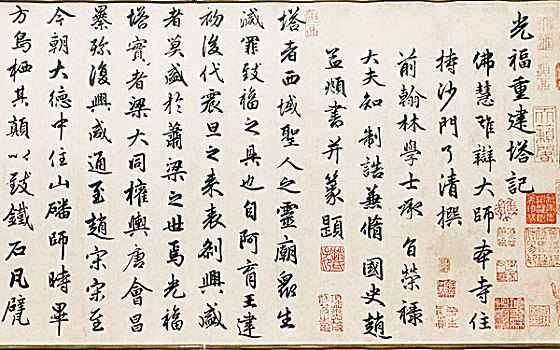 光福重建塔記
佛慧雄辯大師本寺住
持沙門了清撰
前翰林學士承旨榮禄
大夫知制誥兼脩國史趙
孟頫書并篆題
塔者西域聖人之靈廟眾生
滅罪致福之具也自阿育王建
初後代震旦之来表剎興盛
者莫盛於蕭梁之世焉光福
塔實者梁大同權輿唐會昌
弥復興咸通至趙宋宋至
今朝大德中住山磻師時畢
方烏栖其顛以致鐵石凡甓